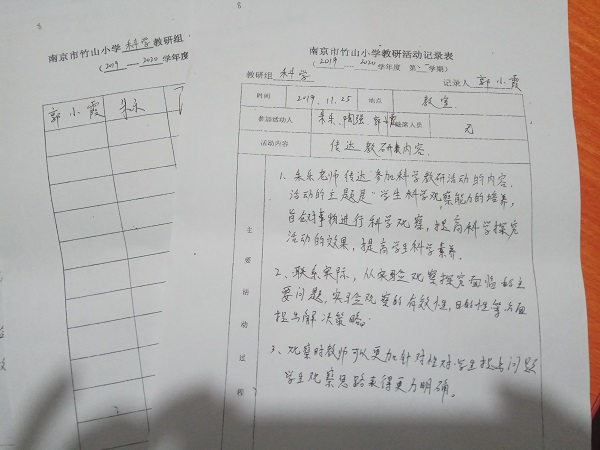 8
南京市竹山小学 科学 教研组
（2019 — 2020 学年度
郭小霞 朱乐
8
南京市竹山小学教研活动记录表
（2019 — 2020 学年度 第 一 学期）
教研组 科学 记录人 郭小霞
时间 2019.11.25 地点 教室
参加活动人 朱乐、陶强、郭小霞 缺席人员 无
活动内容 传达教研内容
主要活动过程
1、朱乐老师传达参加科学教研活动的内容，
活动的主题是“学生科学观察能力的培养，
旨在对事物进行科学观察，提高科学探究
活动的效果，提高学生科学素养。
2、联系实际，从实验观察探究面临的主
要问题，实验观察的有效性，目的性等方面
提出解决策略。
3、观察时教师可以更加针对性对学生提出问题
学生观察思路来得更为明确。